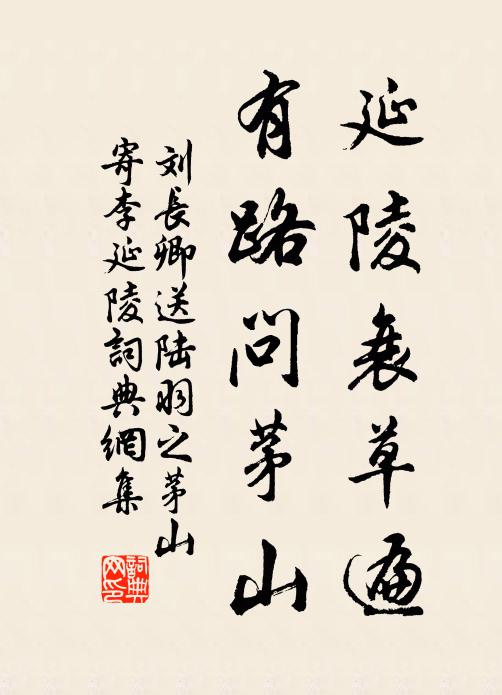 延陵衰草遍
有路问茅山
刘長卿送陆羽之茅山
寄李延陵詞典網集
詞典网印